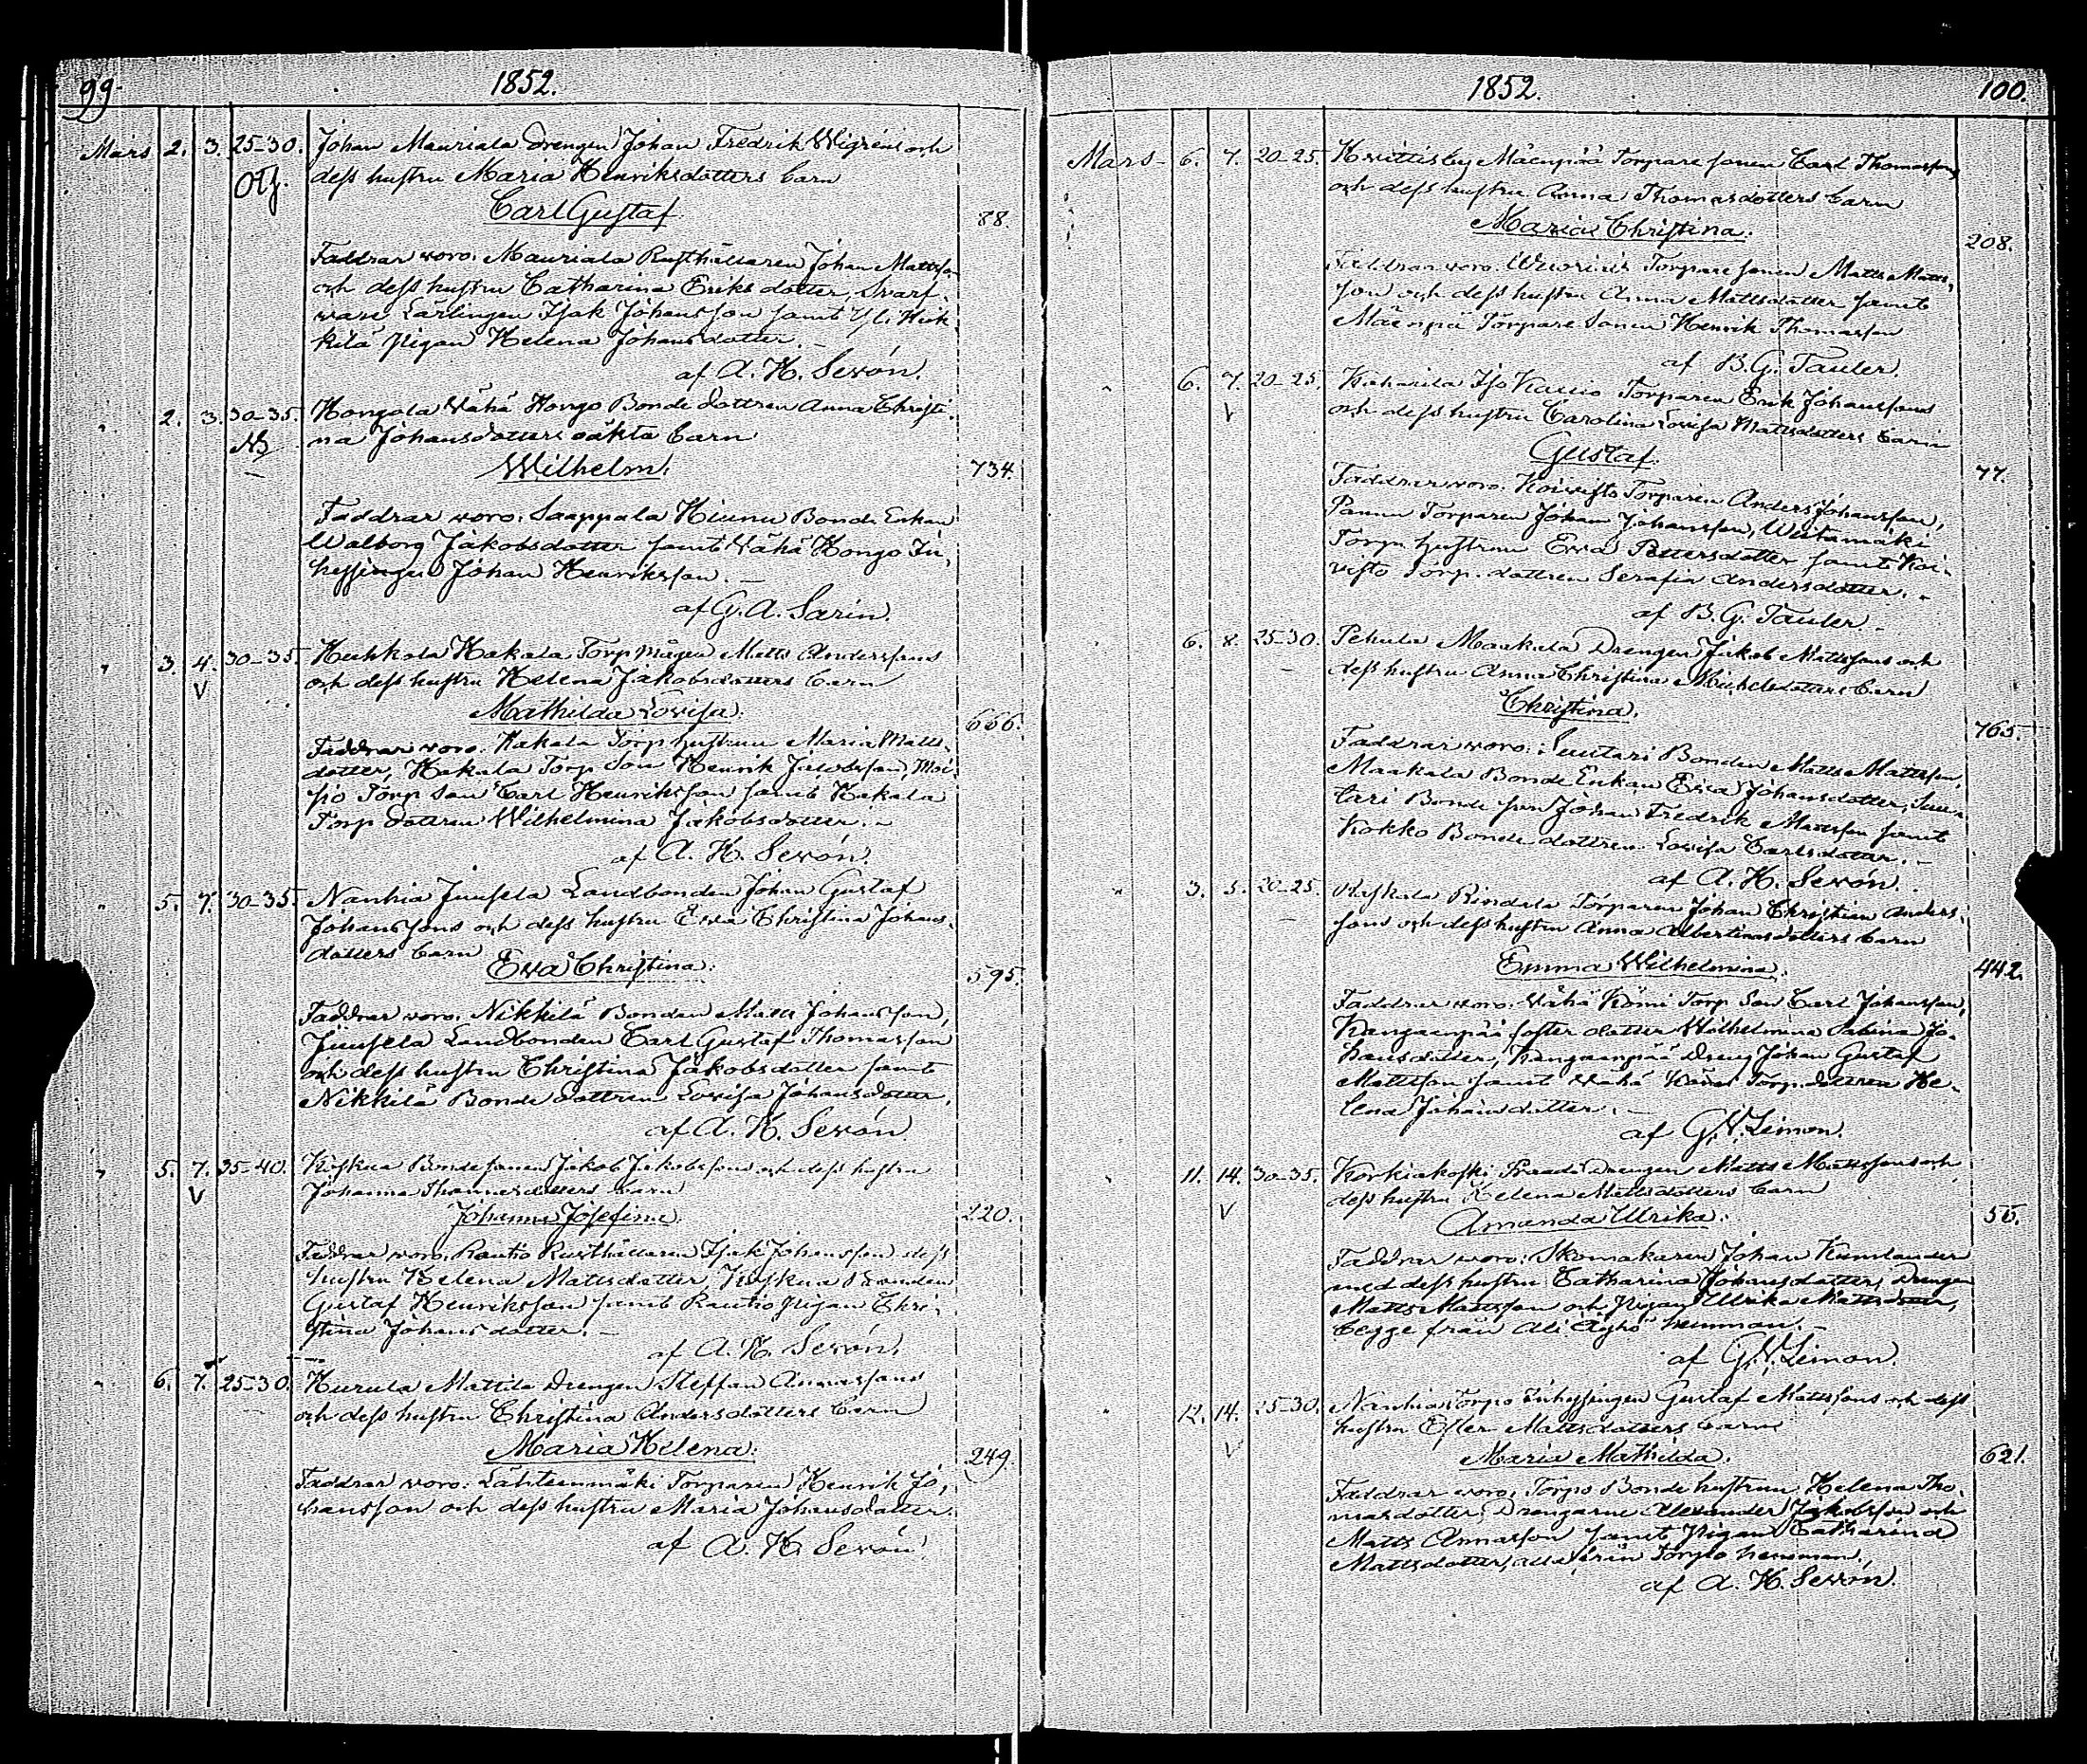 99.
1852.
Mars 2. 3. 25-30. Johan Mauriala Drengen Johan Fredrik Wigréns och
dess hustru Maria Henriksdotters barn
Carl Gustaf. 88.
Faddrar woro: Mauriala Rusthållaren Johan Mattsson
och dess hustru Catharina Eriksdotter, Svarf-
ware Lärlingen Isak Johansson samt Yli Heik-
kilä pigan Helena Johansdotter. —
af A. H. Sevón.
" 2. 3. 30-35. Hongola Wähä Hongo Bonde dottren Anna Christi-
na Johansdotters oäkta barn
Wilhelm. 734.
Faddrar woro: Saappala Hiunu Bonde Enkan
Walborg Jakobsdotter samt Wähä Hongo In-
hyssingen Johan Henriksson. —
af G. A. Sarin.
" 3. 4. 30-35. Huhkola Hakala Torp mågen Matts Anderssons
V och dess hustru Helena Jakobsdotters barn
Mathilda Lovisa. 666.
Faddrar woro: Hakala Torp hustrun Maria Matts-
dotter, Hakala Torp Son Henrik Jakobsson, Moi-
sio Torp Son Carl Henriksson samt Hakala
Torp dottren Wilhelmina Jakobsdotter. —
af A. H. Sevón.
" 5. 7. 30-35. Nanhia Junsela Landbonden Johan Gustaf
Johanssons och dess hustru Ewa Christina Johans-
dotters barn
Ewa Christina. 595.
Faddrar woro: Nikkilä Bonden Matts Johansson,
Junsela Landbonden Carl Gustaf Thomasson
och dess hustru Christina Jakobsdotter samt
Nikkilä Bonde dottren Lovisa Johansdotter.
af A. H. Sevón
" 5. 7. 35-40. Bondesonen Jakob Jakobssons och dess hustru
V Johanna Thomasdotters barn
Johanna Josefina. 220.
Faddrar woro: Rautio Rusthållaren Isak Johansson dess
hustru Helena Mattsdotter, Bonden
Gustaf Henriksson samt Rautio pigan Chri-
stina Johansdotter. —
af A. H. Sevón.
" 6. 7. 25-30. Hurula Mattila Drengen Steffan Annassons
och dess hustru Christina Andersdotters barn
Maria Helena. 249.
Faddrar woro: Lähteenmäki Torparen Henrik Jo-
hansson och dess hustru Maria Johansdotter.
af A. H. Sevón.
1852.
100.
Mars 6. 7. 20-25. Krittisby Mäenpää Torpare sonen Carl Thomassons
och dess hustru Anna Thomasdotters barn
Maria Christina. 208.
Faddrar woro: Torpare sonen Matts Matts-
son och dess hustru Anna Mattsdotter samt
Mäenpä Torpare Sonen Henrik Thomasson
af B. G. Tauler.
" 6. 7. 20-25. Iso Torparen Erik Johanssons
V och dess hustru Carolina Lovisa Mattsdotters barn
Gustaf. 77.
Faddrar woro: Koivisto Torparen Anders Johansson,
Pannu Torparen Johan Johansson, Wiitamäki
Torp. hustrun Ewa Pettersdotter samt Koi-
visto Torp. dottren Serafia Andersdotter. —
af B. G. Tauler. —
6. 8. 25-30. Pehula Maakala Drengen Jakob Mattssons och
dess hustru Anna Christina Michelsdotters barn
Christina. 765.
Faddrar woro: Suutari Bonden Matts Mattsson,
Maakala Bonde Enkan Ewa Johansdotter, Suu-
tari Bonde son Johan Fredrik Mattsson samt
Kokko Bonde dottren Lovisa Carlsdotter. —
af A. H. Sevón.
" 3. 5. 20-25. Rindala Torparen Johan Christian Anders-
sons och dess hustru Anna Albertinasdotters barn
Emma Wilhelmina. 442.
Faddrar woro: Wähä Torp Son Carl Johansson,
Kangaanpää foster dotter Wilhelmina Sabina Jo-
hansdotter, Kangaanpää Dreng Johan Gustaf
Mattsson samt Wähä Torp. dottren He-
lena Johansdotter. —
af G. V. Limon.
" 11. 14. 30-35. Korkiakoski Drengen Matts Mattssons och
V dess hustru Helena Mattsdotters barn
Amanda Ulrika. 56.
Faddrar woro: Skomakaren Johan Kumlander
med dess hustru Catharina Johansdotter, Drengen
Matts Mattsson och Pigan Ulrika Mattsdotter,
begge från Ali Äyhö hemman. —
af G. V. Limon.
" 12. 14. 25-30. Nanhia Torpo Inhyssingen Gustaf Mattssons och dess
V hustru Ester Mattsdotters barn
Maria Mathilda. 621.
Faddrar woro: Torpo Bonde hustrun Helena Tho-
masdotter, Drengarne Alexander Jakobsson och
Matts Annasson samt Pigan Catharina
Mattsdotter, alla från Torpo hemman.
af A. H. Sevón.